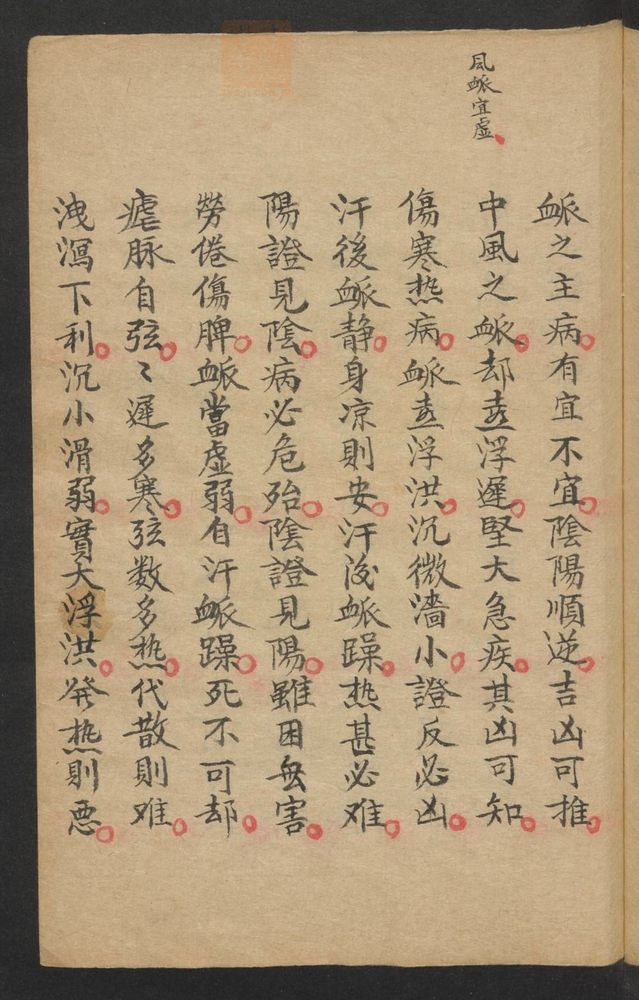 風脈宜虛
脈之主病有宜不宜陰陽順逆吉凶可推
中風之脈却喜浮遲堅大急疾其凶可知
傷寒热病脈喜浮洪沉微濇小證反必凶
汗後脈静身凉則安汗後脈躁热甚必难
陽證見陰病必危殆陰證見陽雖困無害
勞倦傷脾脈當虛弱自汗脈躁死不可却
瘧脉自弦〻遲多寒弦数多热代散則难
洩瀉下利沉小滑弱實大浮洪發热則悪